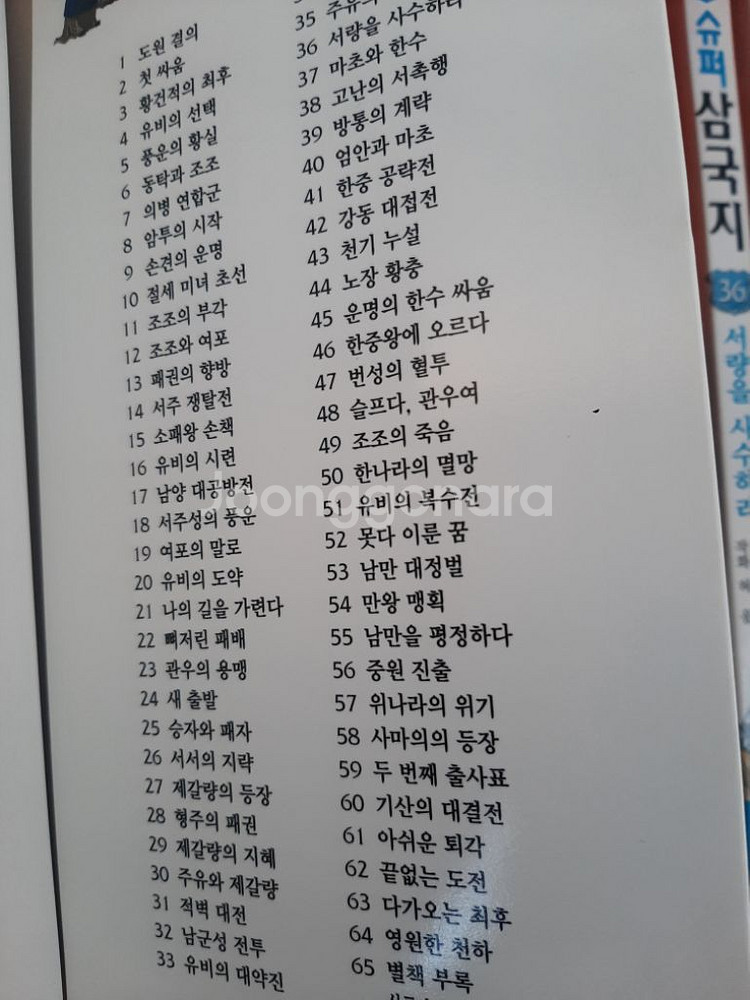 1 도원 결의
2 첫 싸움
3 황건적의 최후
4 유비의 선택
5 풍운의 황실
6 동탁과 조조
7 의병 연합군
8 암투의 시작
9 손견의 운명
10 절세 미녀 초선
11 조조의 부각
12 조조와 여포
13 패권의 향방
14 서주 쟁탈전
15 소패왕 손책
16 유비의 시련
17 남양 대공방전
18 서주성의 풍운
19 여포의 말로
20 유비의 도약
21 나의 길을 가련다
22 뼈저린 패배
23 관우의 용맹
24 새 출발
25 승자와 패자
26 서서의 지략
27 제갈량의 등장
28 형주의 패권
29 제갈량의 지혜
30 주유와 제갈량
31 적벽 대전
32 남군성 전투
33 유비의 대약진
35 주유의
36 서량을 사수하라
37 마초와 한수
38 고난의 서촉행
39 방통의 계략
40 엄안과 마초
41 한중 공략전
42 강동 대접전
43 천기 누설
44 노장 황충
45 운명의 한수 싸움
46 한중왕에 오르다
47 번성의 혈투
48 슬프다, 관우여
49 조조의 죽음
50 한나라의 멸망
51 유비의 복수전
52 못다 이룬 꿈
53 남만 대정벌
54 만왕 맹획
55 남만을 평정하다
56 중원 진출
57 위나라의 위기
58 사마의의 등장
59 두 번째 출사표
60 기산의 대결전
61 아쉬운 퇴각
62 끝없는 도전
63 다가오는 최후
64 영원한 천하
65 별책 부록
슈퍼 삼국지
36
서량을 사수하라
Joonggonara